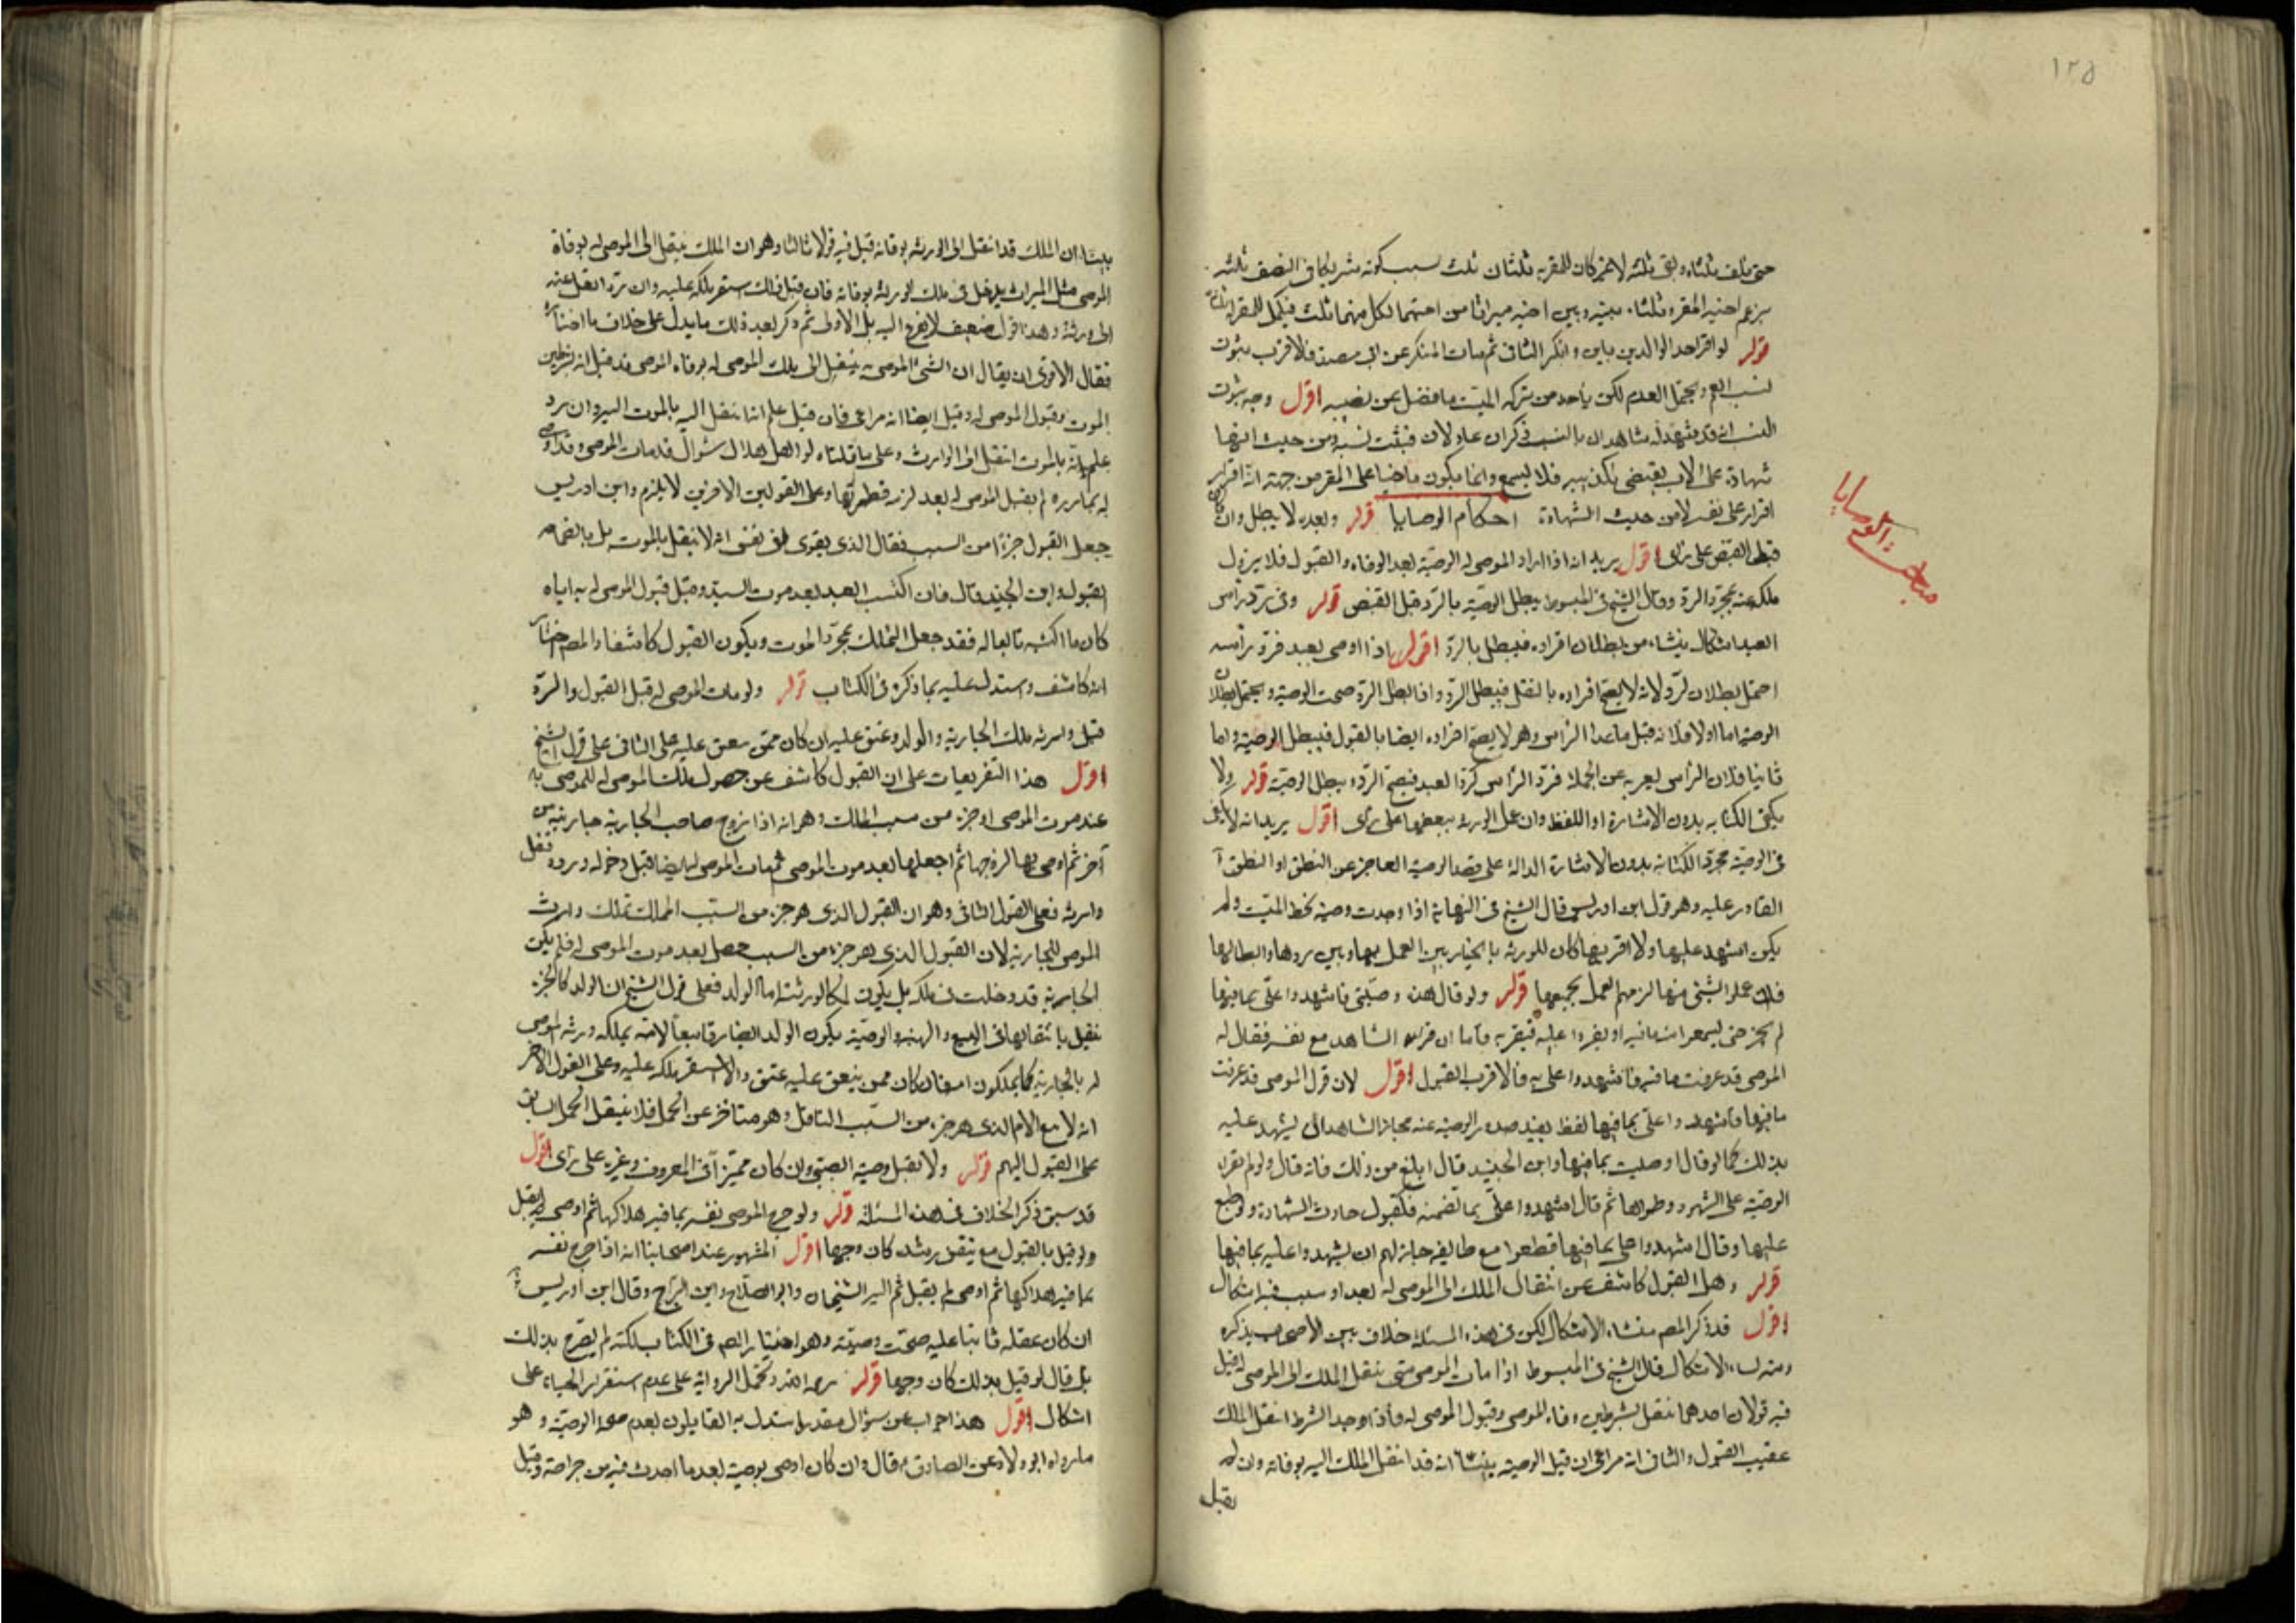 ١٢٥
حتى تلف ثلثاه وبقى ثلثه لاغير كان للمقر به ثلثان ثلث بسبب كونه شريكا في النصف ثلثه
بزعم اخيه المقر وثلثاه بينه وبين اخيه ميراثا من اختهما لكل منهما ثلث فيكمل للمقر له ثلثان
قوله لو اقر احد الوالدين بابن وانكر الثاني ثم مات المنكر عن ابن مصدق فالاقرب ثبوت
نسب العم ويحتمل العدم لكن ياخذ من تركة الميت ما فضل عن نصيبه اقول وجه ثبوت
النسب انه قد شهد له شاهدان بالنسب ذكران عادلان فيثبت نسبه ومن حيث انها
شهادة على الاب يقتضي تكذيبه فلا يسمع وانما يكون ماضيا على المقر من جهة انه اقرار
اقرار على نفسه لا من حيث الشهادة احكام الوصايا قوله وبعده لا يبطل وان كان
قبل القبض على رأى اقول يريد انه اذا اراد الموصى له الوصية بعد الوفاة والقبول فلا يزول
ملكه عنه بمجرد الرد وقال الشيخ في المبسوط يبطل الوصية بالرد قبل القبض قوله وفى رد رأس
العبد اشكال ينشاء من بطلان افراده فيبطل بالرد اقول اذا اوصى بعبد فرد رأسه
احتمل بطلان الرد لانه لا يصح افراده بالنقل فيبطل الرد واذا بطل الرد صحت الوصية ويحتمل بطلان
الوصية اما اولا فلانه قبل ما عدا الرأس وهو لا يصح افراده ايضا بالقبول فيبطل الوصية واما
ثانيا فلان الرأس يعبر به عن الجملة فرد الرأس كرد العبد فيصح الرد ويبطل الوصية قوله ولا
يكفى الكتابة بدون الاشارة او اللفظ وان عمل الورثة ببعضها على رأى اقول يريد انه لا يكفى
في الوصية مجرد الكتابة بدون الاشارة الدالة على قصد الوصية العاجز عن النطق او النطق
القادر عليه وهو قول ابن ادريس قال الشيخ في النهاية اذا وجدت وصية بخط الميت ولم
يكن اشهد عليها ولا اقر بها كان للورثة بالخيار بين العمل بها وبين ردها وابطالها
فان عملوا بشئ منها لزمهم العمل بجميعها قوله ولو قال هذه وصيتى فاشهدوا على بما فيها
لم يجز حتى يسمعوا منه ما فيه او يقروا عليه فيقر به فاما ان قراه الشاهد مع نفسه فقال له
الموصى قد عرفت ما فيه فاشهدوا على به فالاقرب القبول اقول لان قول الموصى قد عرفت
ما فيها فاشهدوا على بما فيها لفظ يفيد صدور الوصية عنه فجاز للشاهد ان يشهد عليه
بذلك كما لو قال اوصيت بما فيها وابن الجنيد قال ابلغ من ذلك فانه قال ولو لم يقرا
الوصية على الشهود وطواها ثم قال اشهدوا على بما تضمنه فكقبول حادث الشهادة ولو طبع
عليها وقال اشهدوا على بما فيها قطعوا مع طايفه جاز لهم ان يشهدوا عليه بما فيها
قوله وهل القبول كاشف عن انتقال الملك الى الموصى له بعد او سبب فيه اشكال
اقول قد ذكر المصـ منشاء الاشكال لكن في هذه المسئلة خلاف بين الاصحاب يذكره
ومنه نشاء الاشكال قال الشيخ في المبسوط اذا مات الموصى متى ينتقل الملك الى الموصى له قيل
فيه قولان احدهما ينتقل بشرطين وفاة الموصى وقبول الموصى له فاذا وجد الشرط انتقل الملك
عقيب القبول والثاني انه مراعى ان قبل الوصية بينا انه قد انتقل الملك اليه بوفاته وان لم
يقبل
مباحث الوصايا
بينا ان الملك قد انتقل الى الورثة بوفاته قيل فيه قولا ثالثا وهو ان الملك ينتقل الى الموصى له بوفاة
الموصى مثل الميراث يدخل في ملك الورثة بوفاته فان قبل ذلك استقر ملكه عليه وان رد انتقل عنه
الى ورثة وهذا قول ضعيف لا يفرع اليه بل الاولى ثم ذكر بعد ذلك ما يدل على خلاف ما اختاره
فقال الاقوى ان يقال ان الشئ الموصى به ينتقل الى ملك الموصى له بوفاة الموصى قد قيل انه بشرطين
الموت وقبول الموصى له وقيل ايضا انه مراعى فان قبل علم انه انتقل اليه بالموت اليه وان رد
علم انه بالموت انتقل الى الوارث وعلى ما قلناه لو اهل هلال شوال قد مات الموصى وقد اوصى
له بمملوك ولم يقبل الموصى له بعد لزمه فطرتها وعلى القولين الاخرين لا يلزم وابن ادريس
جعل القبول جزءا من السبب فقال الذي يقوى في نفسى انه لا ينتقل بالموت بل بانضمام
القبول وابن الجنيد قال فان اكتسب العبد بعد موت السيد وقبل قبول الموصى له به اياه
كان ما اكتسبه تابعا له فقد جعل التملك بمجرد الموت ويكون القبول كاشفا والمصـ اختار
انه كاشف واستدل عليه بما ذكره في الكتاب قوله ولو مات الموصى له قبل القبول والرد
قبل وارثه ملك الجارية والولد وعتق عليه ان كان ممن ينعتق عليه على الثاني على قول الشيخ
اقول هذا التفريعات على ان القبول كاشف عن حصول ملك الموصى له للموصى به
عند موت الموصى او جزء من سبب الملك وهو انه اذا زوج صاحب الجارية جاريته من
آخر ثم اوصى بها لزوجها ثم احبلها بعد موت الموصى ثم مات الموصى له ايضا قبل دخوله ورده فقبل
وارثه فعلى القول الثاني وهو ان القبول الذي هو جزء من السبب المملك تملك وارث
الموصى للجارية لان القبول الذي هو جزء من السبب حصل بعد موت الموصى له فلم يكن
الجارية قد دخلت في ملكه بل يكون ملكا لورثته اما الولد فعلى قول الشيخ ان الولد كالجزء
ينتقل بانتقالها في البيع والهبة والوصية يكون الولد ايضا رقا تبعا لامه يملكه ورثة الموصى
له بالجارية كما يملكون امه فان كان ممن ينعتق عليه عتق والا استقر ملكه عليه وعلى القول الاخر
انه لا يتبع الام الذي هو جزء من السبب الناقل وهو متاخر عن الحمل فلا ينتقل الحمل السابق
على القبول اليهم قوله ولا يقبل وصية الصبى وان كان مميزا في المعروف وغيره على رأى اقول
قد سبق ذكر الخلاف في هذه المسئلة قوله ولو جرح الموصى نفسه بما فيه هلاكها ثم اوصى لم يقبل
ولو قيل بالقبول مع تيقن رشده كان وجها اقول المشهور عند اصحابنا انه اذا جرح نفسه
بما فيه هلاكها ثم اوصى لم يقبل ثم اليه الشيخان وابو الصلاح وابن البراج وقال ابن ادريس
ان كان عقله ثابتا عليه صحت وصيته وهو اختيار المصـ في الكتاب لكنه لم يصرح بذلك
بل قال لو قيل بذلك كان وجها قوله رحمه الله وتحمل الرواية على عدم استقرار الحياة على
اشكال اقول هذا جواب عن سؤال مقدر استدل به القايلون بعدم صحة الوصية وهو
ما رواه ابو ولاد عن الصادق ع قال وان كان اوصى بوصية بعد ما احدث فيه من جراحة وقتل